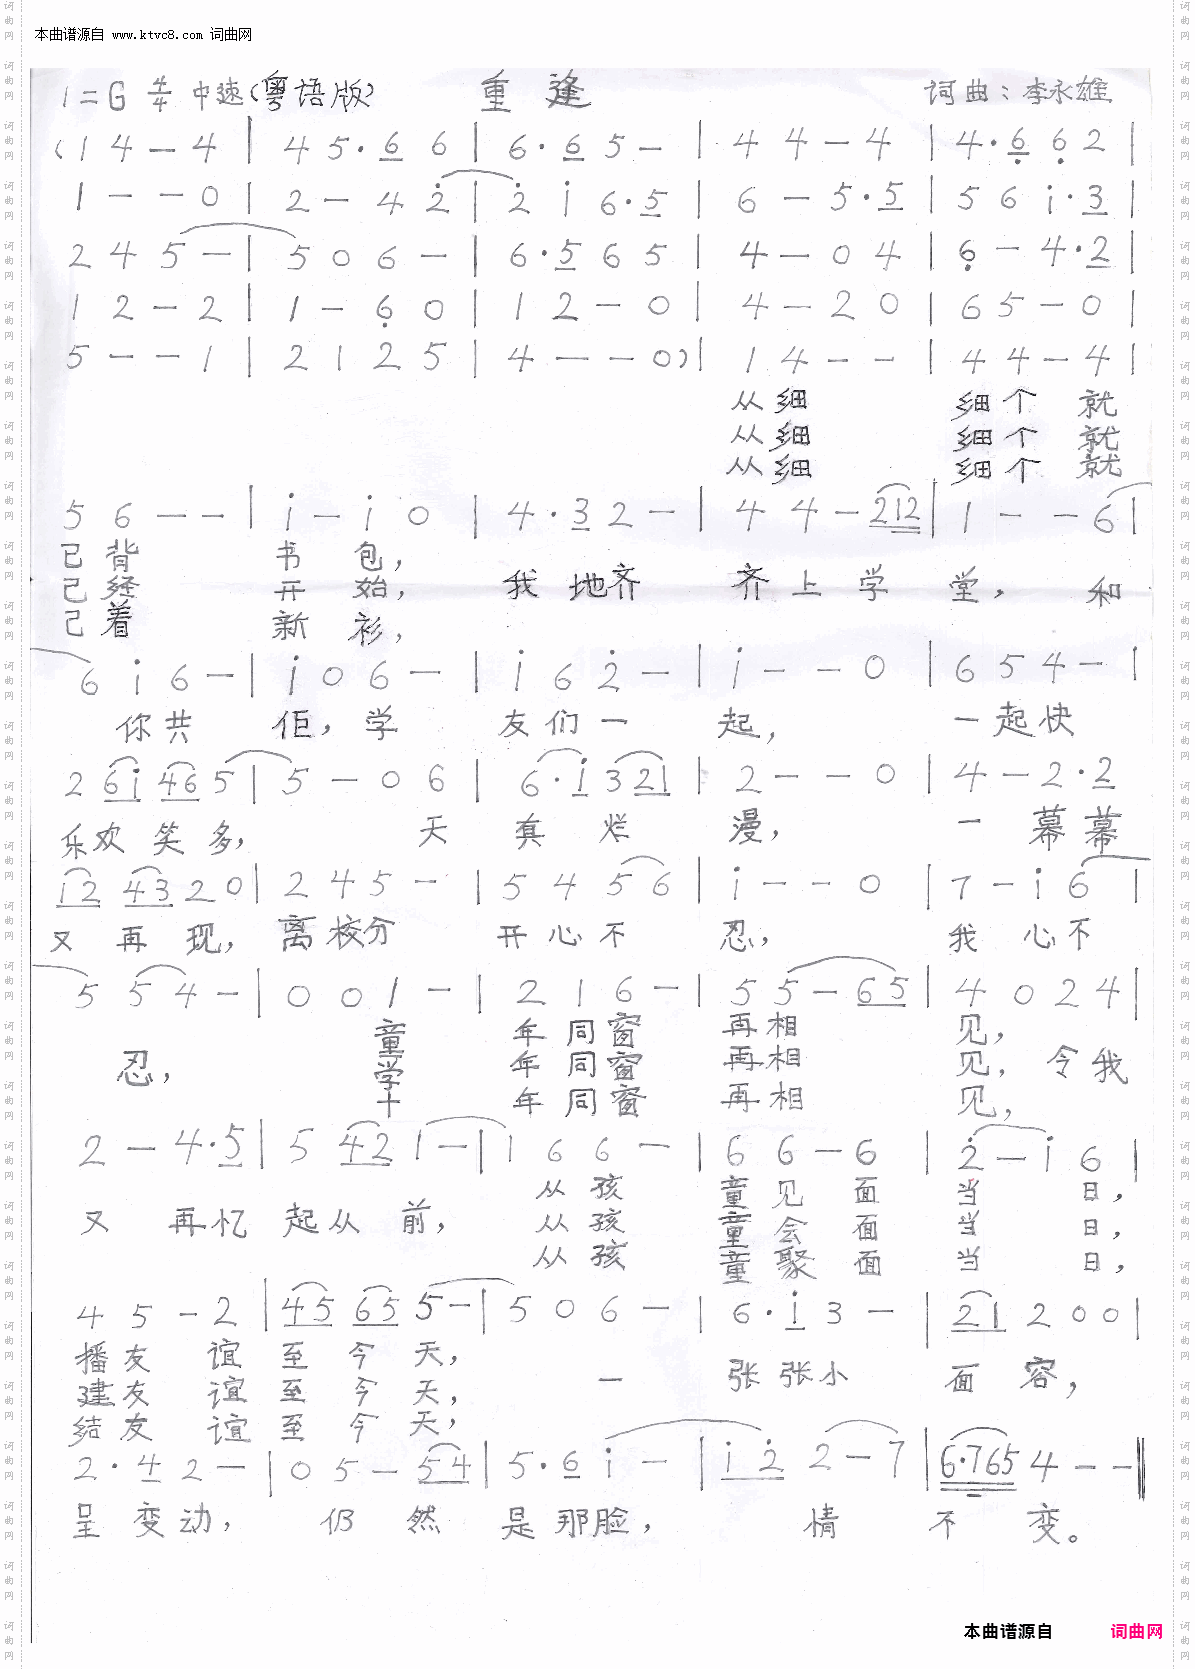 本曲谱源自 www.ktvc8.com 词曲网
1=G 4/4 中速(粤语版) 重逢 词曲：李永雄
(1 4 — 4 | 4 5·6 6 | 6·6 5 — | 4 4 — 4 | 4·6 6 2 |
1 — — 0 | 2 — 4 2 | 2 i 6·5 | 6 — 5·5 | 5 6 i·3 |
2 4 5 — | 5 0 6 — | 6·5 6 5 | 4 — 0 4 | 6 — 4·2 |
1 2 — 2 | 1 — 6 0 | 1 2 — 0 | 4 — 2 0 | 6 5 — 0 |
5 — — 1 | 2 1 2 5 | 4 — — 0) | 1 4 — — | 4 4 — 4 |
从细 细个 就
从细 细个 就
从细 细个 就
5 6 — — | i — i 0 | 4·3 2 — | 4 4 — 212 | 1 — — 6 |
已背 书 包，
已经 开 始， 我 地齐 齐上学 堂， 和
已着 新 衫，
6 i 6 — | i 0 6 — | i 6 2 — | i — — 0 | 6 5 4 — |
你共 佢，学 友们一 起， 一起快
2 6i 46 5 | 5 — 0 6 | 6·i 3 21 | 2 — — 0 | 4 — 2·2
乐欢 笑多， 天 真 烂 漫， 一 幕幕
i2 43 2 0 | 2 4 5 — | 5 4 5 6 | i — — 0 | 7 — i 6 |
又 再 现，离校分 开心不 忍， 我 心不
5 5 4 — | 0 0 1 — | 2 1 6 — | 5 5 — 65 | 4 0 2 4 |
童 年同窗 再相 见，
忍， 学 年同窗 再相 见，令我
十 年同窗 再相 见，
2 — 4·5 | 5 42 1 — | 1 6 6 — | 6 6 — 6 | 2 — i 6 |
从孩 童见 面 当 日，
又 再忆 起从 前， 从孩 童会 面 当 日，
从孩 童聚 面 当 日，
4 5 — 2 | 45 65 5 — | 5 0 6 — | 6·i 3 — | 21 2 0 0 |
播友 谊 至 今 天，
建友 谊 至 今 天， 一 张张小 面 容，
结友 谊 至 今 天，
2·4 2 — | 0 5 — 54 | 5·6 i — | i 2 2 — 7 | 6·765 4 — — ‖
呈 变动， 仍 然 是那脸， 情 不 变。
本曲谱源自 词曲网